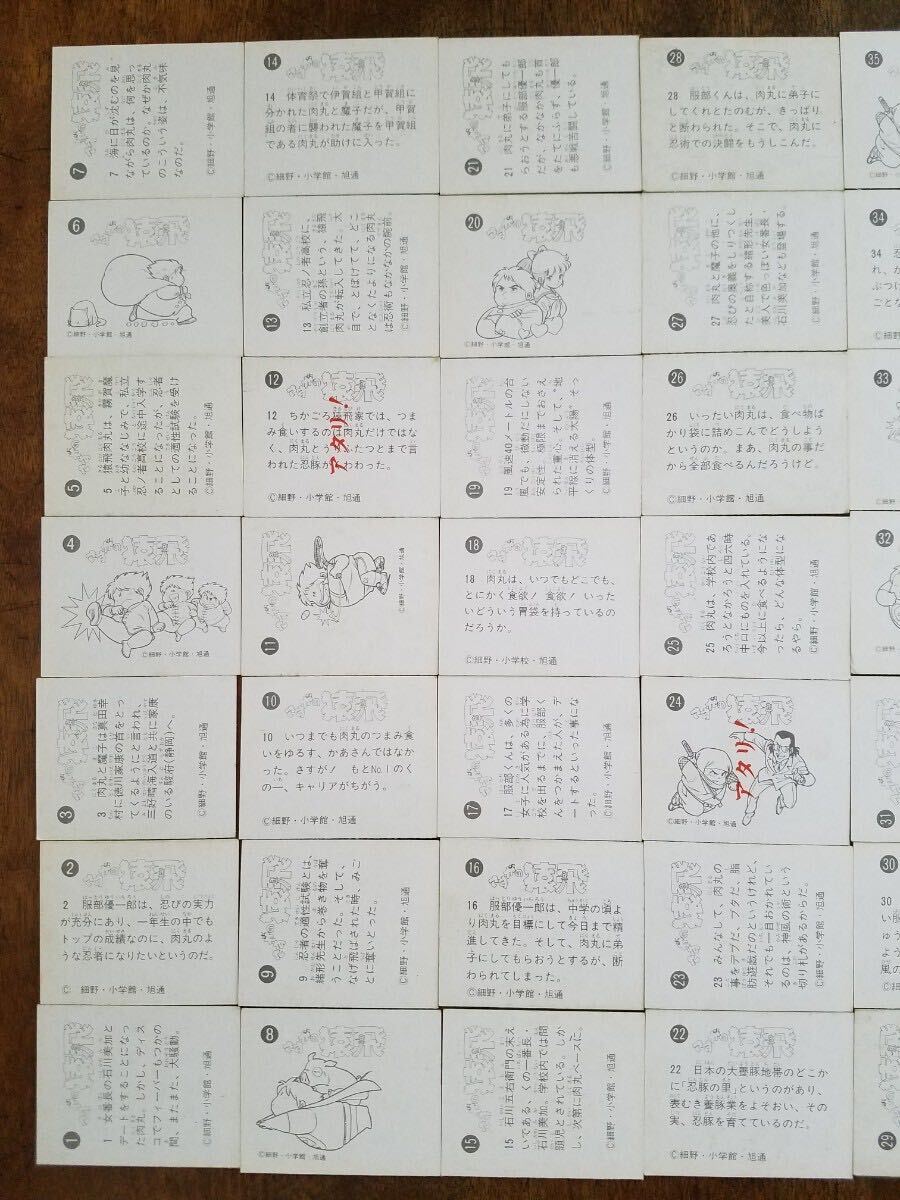 7
7 海に日が沈むのを見
ながら肉丸は、何を思っ
ているのか。なぜか肉丸
のこういう姿は、不気味
なのだ。
©細野・小学館・旭通
14
14 体育祭で伊賀組と甲賀組に
分かれた肉丸と魔子だが、甲賀
組の者に襲われた魔子を甲賀組
である肉丸が助けに入った。
©細野・小学館・旭通
21
21 肉丸に弟子にしても
らおうとする服部優一郎
だが、なかなか肉丸も首
をたてにふらず、優一郎
も悪戦苦闘している。
©細野・小学館・旭通
28
28 服部くんは、肉丸に弟子に
してくれとたのむが、きっぱり
と断わられた。そこで、肉丸に
忍術での決闘をもうしこんだ。
©細野・小学館・旭通
35
6
©細野・小学館・旭通
13
13 私立忍ノ者高校に、
創立者の孫という、猿飛
肉丸が転入してきた。大
目で、とぼけてて、どこ
となくたよりになる肉丸
は忍術もなかなかの腕前。
©細野・小学館・旭通
20
©細野・小学館・旭通
27
27 肉丸と魔子の他に、
忍びの奥義をしりつくし
たと自称する緒形先生、
美人で色っぽい女番長
石川美加なども登場する。
©細野・小学館・旭通
34
5
5 猿飛肉丸は、霧賀魔
子と幼ななじみで、私立
忍ノ者高校に途中入学す
ることになったが、忍者
としての適性試験を受け
ることになった。
©細野・小学館・旭通
12
12 ちかごろ猿飛家では、つま
み食いするのは肉丸だけではな
く、肉丸と
ふたつとまで言
われた忍豚が
わった。
アタリ!
©細野・小学館・旭通
19
19 風速40メートルの台
風でも、微動だにしない
安定性。極限までおさえ
られた重心。そして、地
平線に消える太陽、そっ
くりの体型。
©細野・小学館・旭通
26
26 いったい肉丸は、食べ物ば
かり袋に詰めこんでどうしよう
というのか。まあ、肉丸の事だ
から全部食べるんだろうけど。
©細野・小学館・旭通
33
4
©細野・小学館・旭通
11
©細野・小学館・旭通
18
18 肉丸は、いつでもどこでも、
とにかく食欲!食欲!いった
いどういう胃袋を持っているの
だろうか。
©細野・小学校・旭通
25
25 肉丸は、学校内であ
ろうとなかろうと四六時
中口にものを入れている。
今以上に食べるようにな
ったら、どんな体型にな
るやら。
©細野・小学館・旭通
32
3
3 肉丸と魔子は真田幸
村に徳川家康の首をとっ
てくるようにと言われ、
三好晴海入道と共に家康
のいる駿府(静岡)へ。
©細野・小学館・旭通
10
10 いつまでも肉丸のつまみ食
いをゆるす、かあさんではなか
った。さすが!もとNo.1のく
の一、キャリアがちがう。
©細野・小学館・旭通
17
17 服部くんは、多くの
女子に人気がある為に学
校を出るまでに、服部く
んをつかまえた人が、デ
ートするといった事にな
った。
©細野・小学館・旭通
24
アタリ!
©細野・小学館・旭通
31
2
2 服部優一郎は、忍びの実力
が充分にあり、一年生の中でも
トップの成績なのに、肉丸のよ
うな忍者になりたいというのだ。
© 細野・小学館・旭通
9
9 忍者の適性試験とは、
緒形先生から巻き物を奪
うことだった。そして、
なげ飛ばされた時、みご
とに奪いとった。
©細野・小学館・旭通
16
16 服部優一郎は、中学の頃よ
り肉丸を目標にして今日まで精
進してきた。そして、肉丸に弟
子にしてもらおうとするが、断
わられてしまった。
©細野・小学館・旭通
23
23 みんなして、肉丸の
事をデブだ、ブタだ、脂
肪遊戯だのというけれど、
それでも一目おかれてい
るのは、神風の術という
切り札があるからだ。
©細野・小学館・旭通
30
1
1 女番長の石川美加と
デートをすることになっ
た肉丸。しかし、ディス
コでフィーバーもつかの
間、またまた、大騒動。
©細野・小学館・旭通
8
©細野・小学館・旭通
15
15 石川五右衛門の末え
いである、くの一番長・
石川美加。学校内では問
題児とされている。しか
し、次第に肉丸ペースに。
©細野・小学館・旭通
22
22 日本の大養豚地帯のどこか
に「忍豚の里」というのがあり、
表むき養豚業をよそおい、その
実、忍豚を育てているのだ。
©細野・小学館・旭通
29